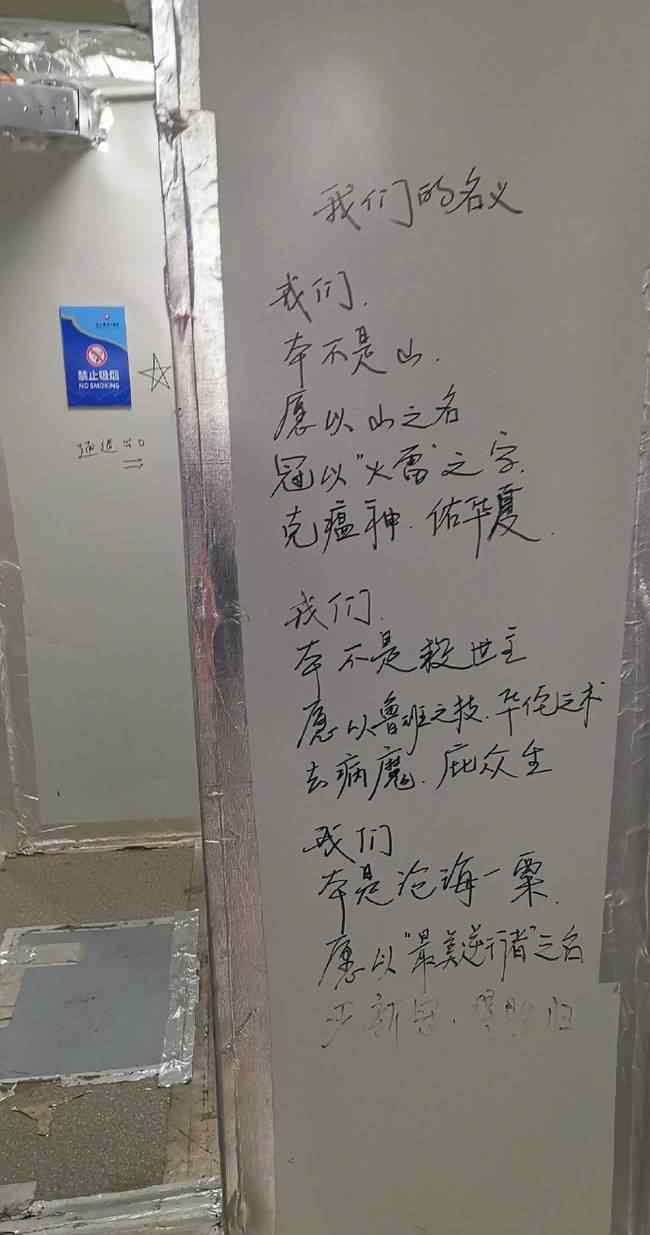 我们的名义
我们.
本不是山.
愿以山之名
冠以"火雷"之字.
克瘟神.佑华夏.
我们.
本不是救世主
愿以鲁班之技.华佗之术
去病魔.庇众生
我们
本是沧海一粟.
愿以"最美逆行者"之名
新冠.胜归
禁止吸烟
NO SMOKING
通道出口